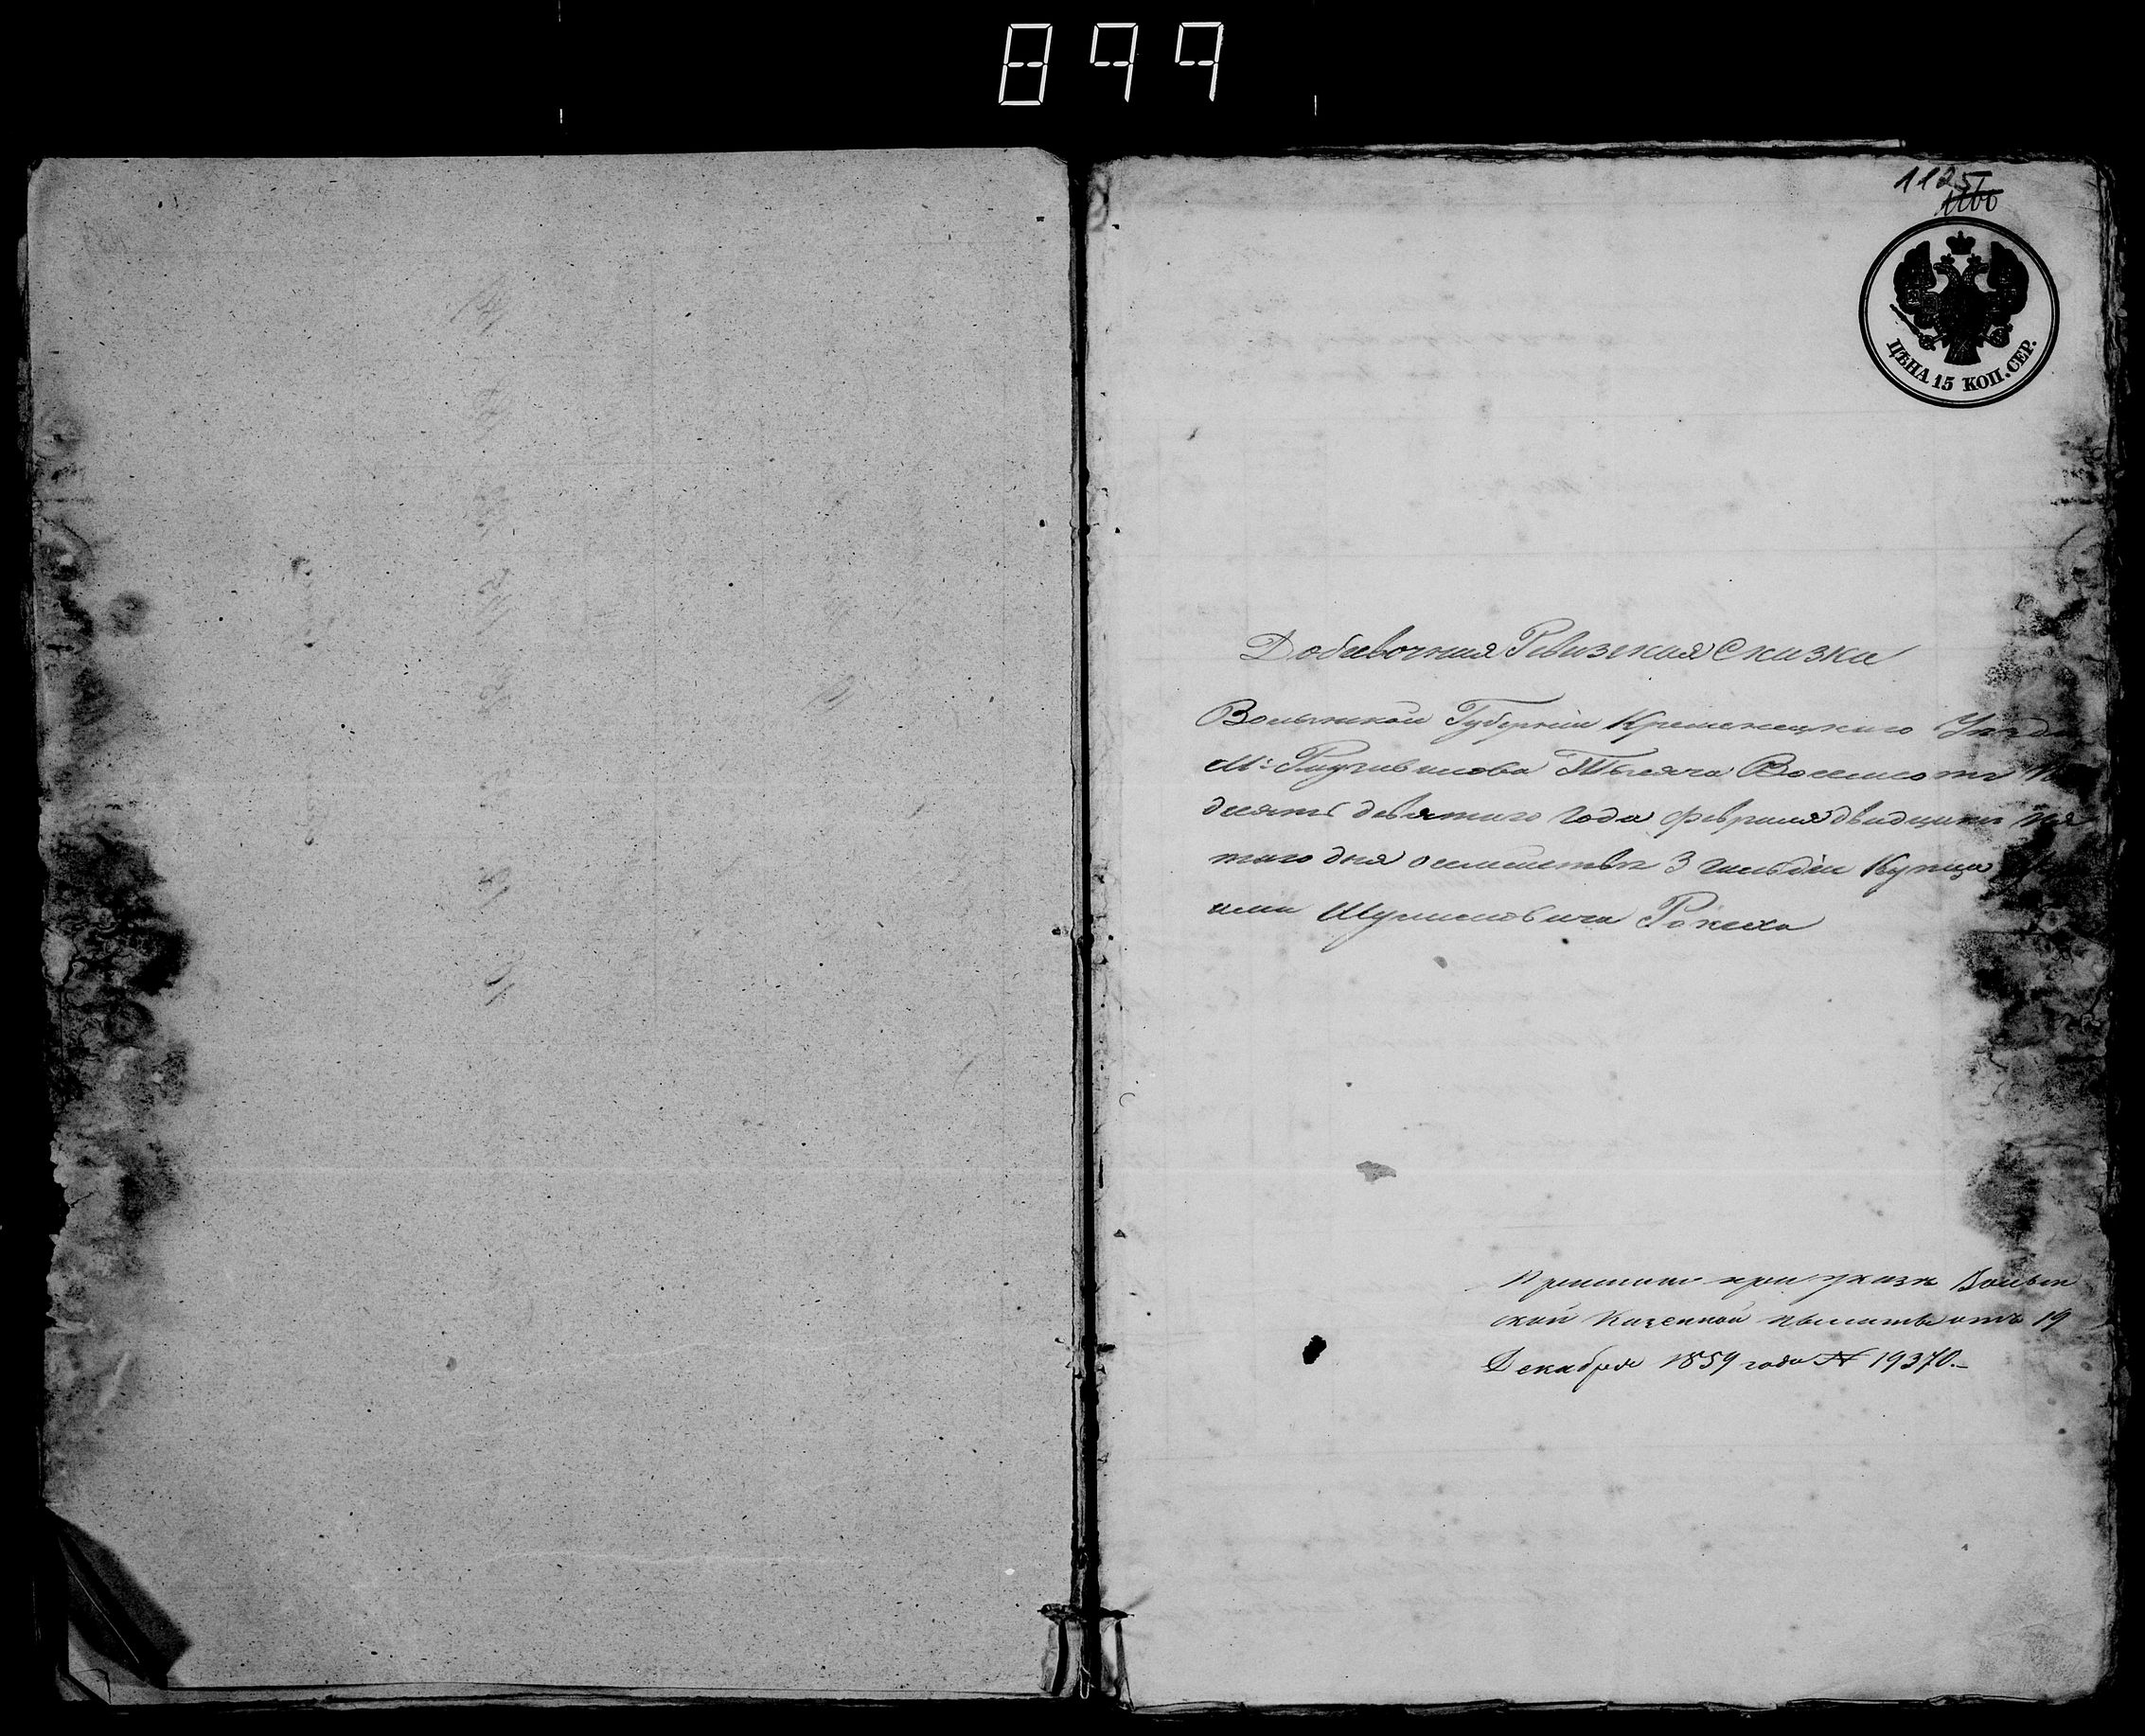 899
1125
1160
ЦѢНА 15 КОП. СЕР.
Добавочная Ревизская Сказка
Волынской Губерніи Кременецкаго Уѣзда
М: Радзивилова Тысяча Восемсотъ
десятъ девятаго Года февраля двадцать пя
таго дня о семействѣ 3 Гильдіи Купца
Шулимовича Рокеха
при указѣ Волын
ской Казенной палаты отъ 19
Декабря 1859 года № 19370.-